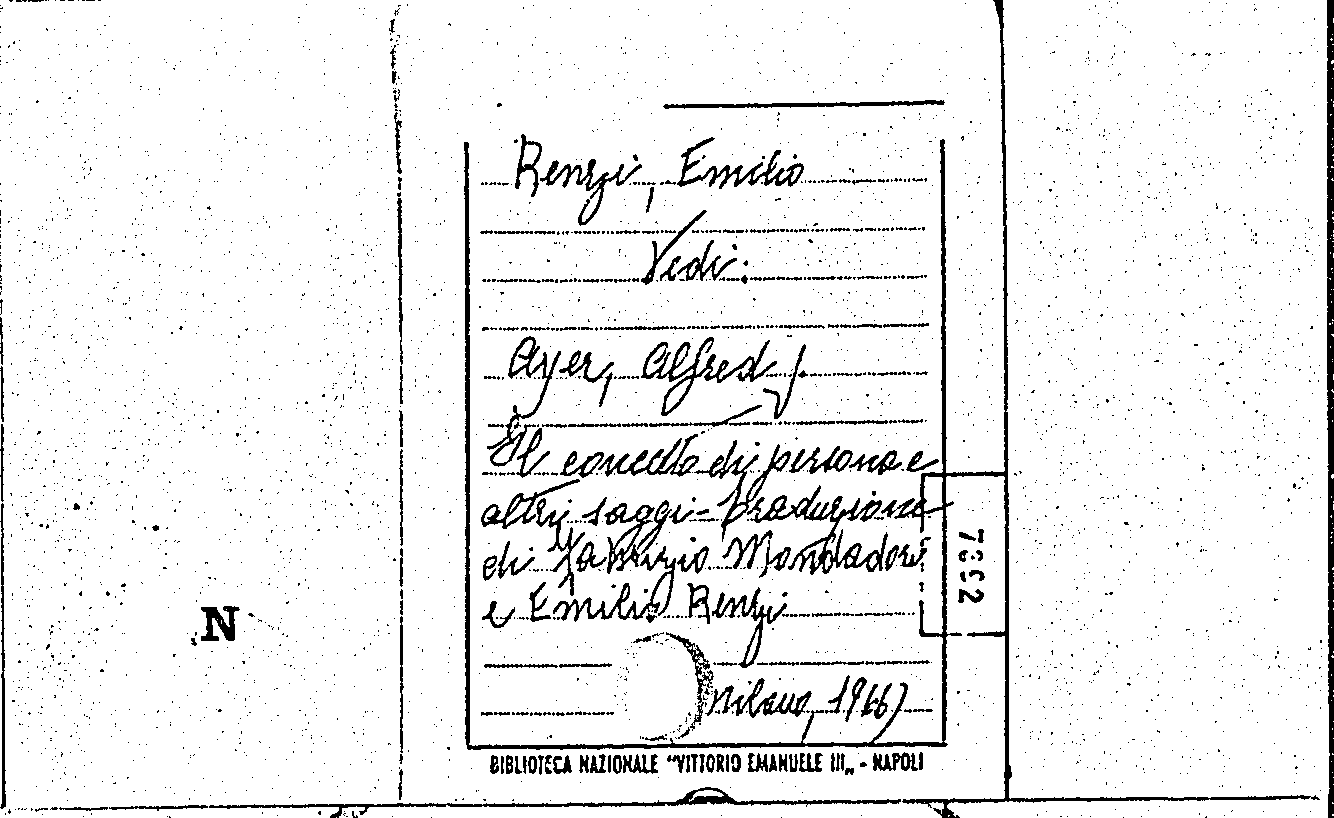 Renzi, Emilio
Vedi:
Ayer, Alfred J.
Il concetto di persona e
altri saggi - traduzione
di Fabrizio Mondadori
e Emilio Renzi
Milano, 1966)
BIBLIOTECA NAZIONALE "VITTORIO EMANUELE III„ - NAPOLI
N